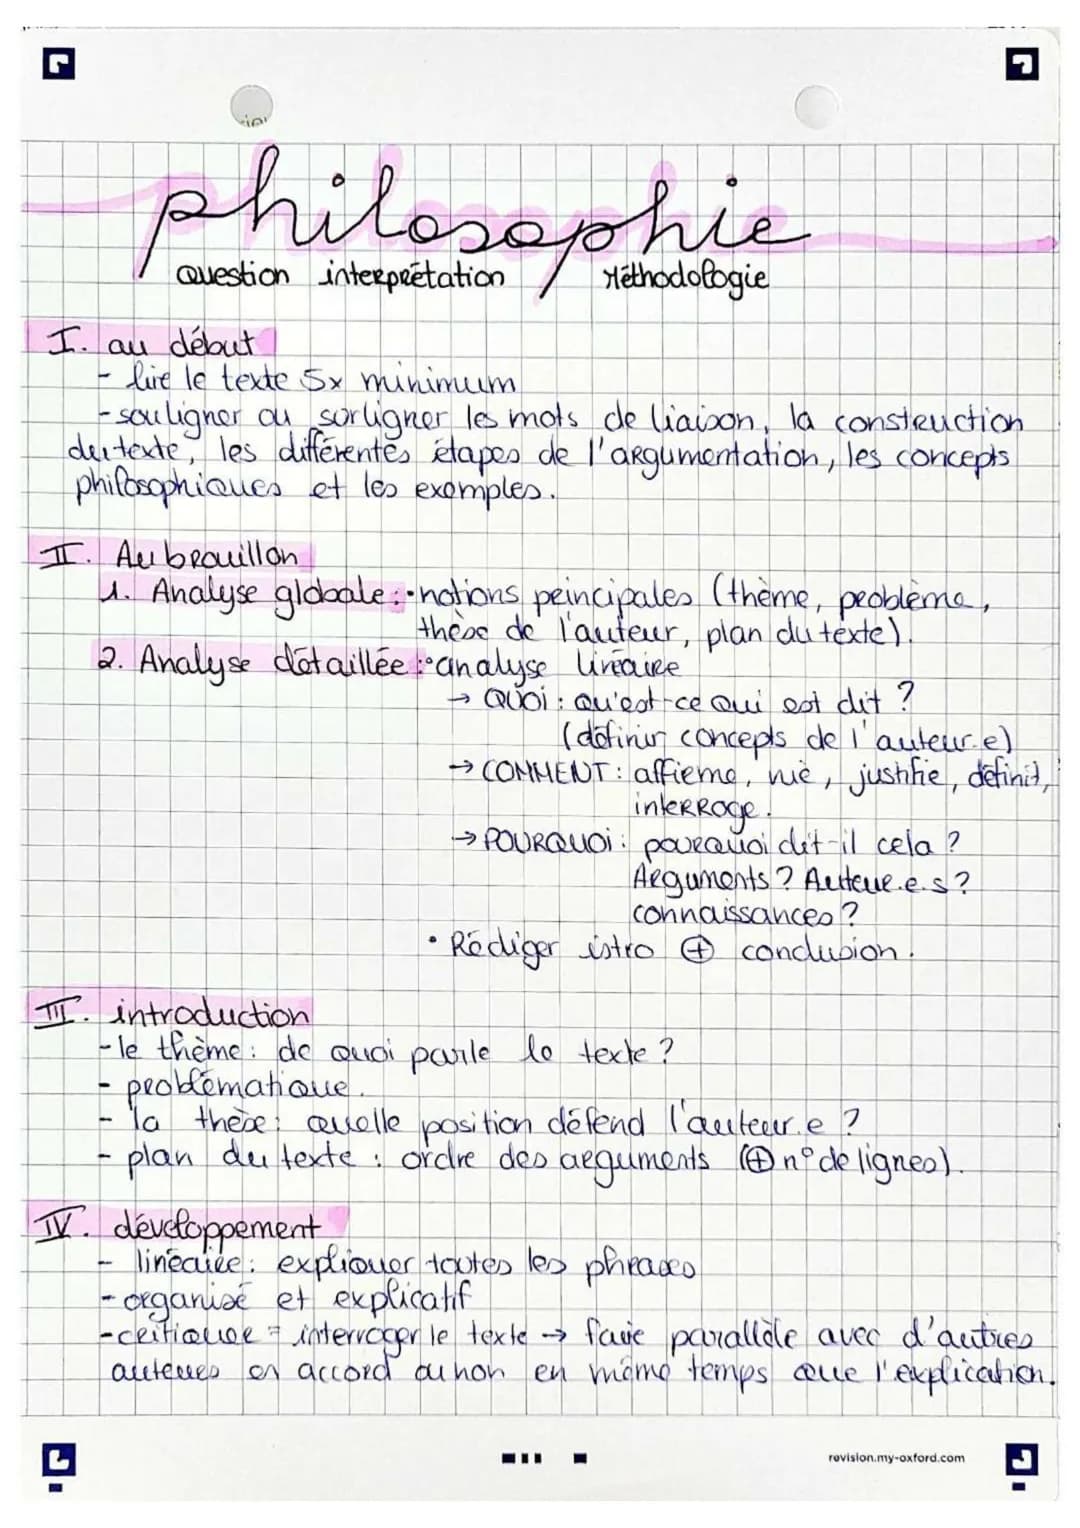 philosophie
question interprétation / Méthodologie
I. au début
- lire le texte 5x minimum
- souligner ou surligner les mots de liaison, la construction
du texte, les différentes étapes de l'argumentation, les concepts
philosophiques et les exemples.
II. Au brouillon
1. Analyse globale : • notions principales (thème, problème,
thèse de l'auteur, plan du texte).
2. Analyse détaillée : • analyse linéaire
→ QUOI : qu'est-ce qui est dit ?
(définir concepts de l'auteur.e)
→ COMMENT : affirme, nie, justifie, définit,
interroge.
→ POURQUOI : pourquoi dit-il cela ?
Arguments ? Auteur.e.s ?
connaissances ?
• Rédiger istro ⊕ conclusion.
III. introduction
- le thème : de quoi parle le texte ?
- problématique.
- la thèse : quelle position défend l'auteur.e ?
- plan du texte : ordre des arguments (⊕ n° de lignes).
IV. développement
- linéaire : expliquer toutes les phrases
- organisé et explicatif
- critique = interroger le texte → faire parallèle avec d'autres
auteurs en accord ou non en même temps que l'explication.
revision.my-oxford.com